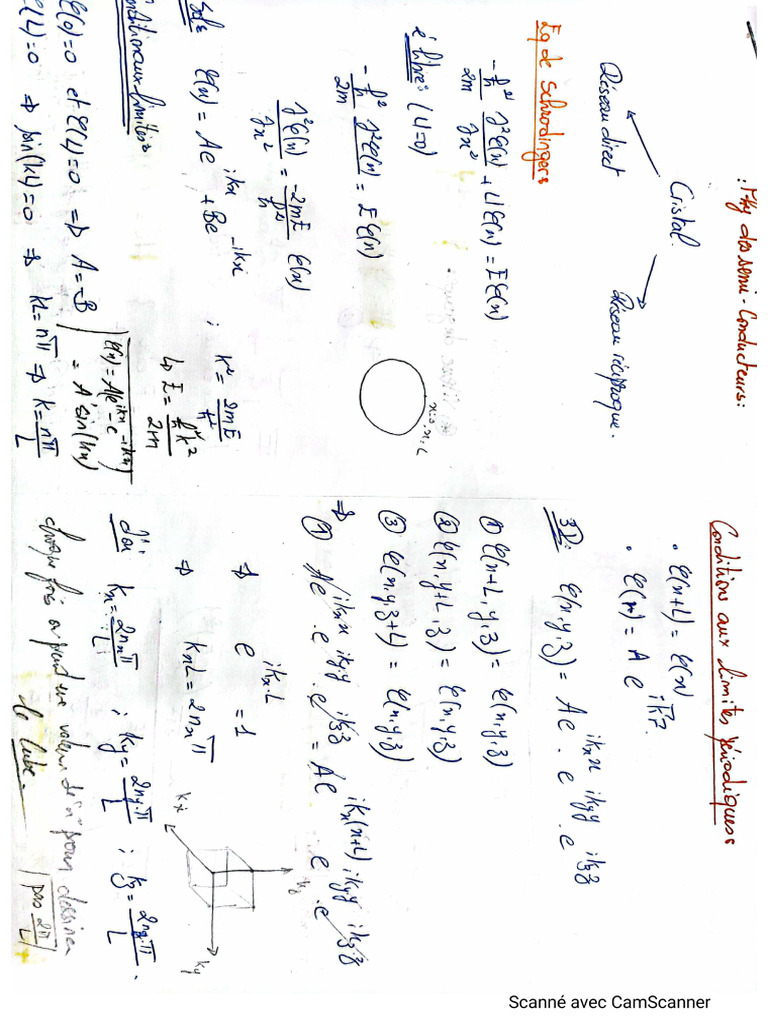 : Phy des semi-Conducteurs:
Cristal.
Réseau direct
Réseau réciproque.
Eq de Schrodinger:
-ħ²/2m ∂²φ(x)/∂x² + Uφ(x) = Eφ(x)
é libres (U=0)
-ħ²/2m ∂²φ(x) = Eφ(x)
x=0 x=L
∂²φ(x)/∂x² = -2mE/ħ² φ(x)
Sol: φ(x) = Ae^ikx + Be^-ikx ; k² = 2mE/ħ²
↳ E = ħ²k²/2m
nditions aux limites
φ(0)=0 et φ(L)=0 ⇒ A=-B
φ(x) = Ae^ikx - e^-ikx
= A' sin(kx)
φ(L)=0 ⇒ sin(kL)=0 ⇒ kL=nπ ⇒ k=nπ/L
Conditions aux limites périodiques
• φ(x+L) = φ(x)
• φ(r) = A e^ik.r
3D: φ(x,y,z) = Ae^ikx x . e^iky y . e^ikz z
① φ(x+L,y,z) = φ(x,y,z)
② φ(x,y+L,z) = φ(x,y,z)
③ φ(x,y,z+L) = φ(x,y,z)
⇒ ① Ae^ikx x . e^iky y . e^ikz z = Ae^ikx(x+L) . e^iky y . e^ikz z
⇒ e^ikx.L = 1
⇒ kxL = 2nxπ
kz
kx
ky
d'où kx = 2nxπ/L ; ky = 2ny.π/L ; kz = 2nz.π/L .
chaque fois on prend une valeur de n pour dessiner
le cube. pas 2π/L
Scanné avec CamScanner